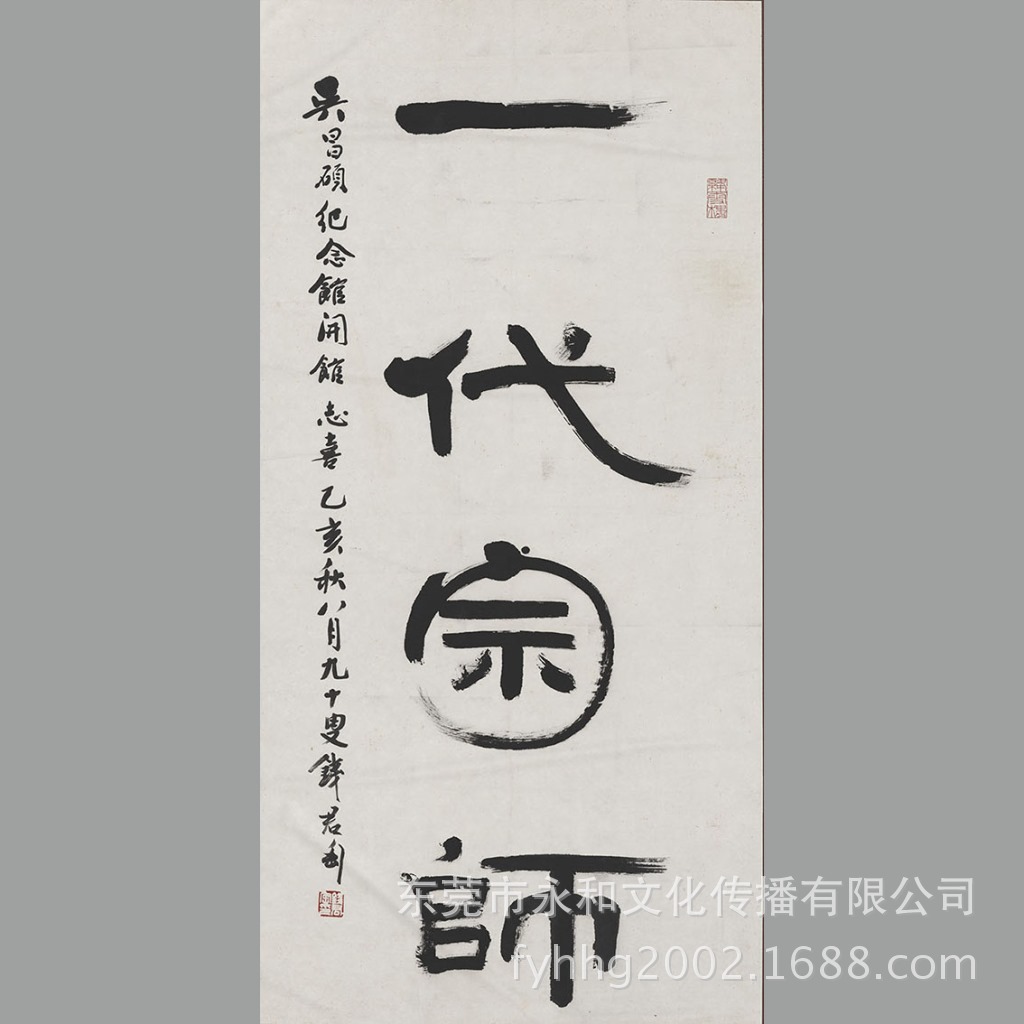 一代宗師
吳昌碩纪念館開館志喜乙亥秋八月九十叟錢君匋
东莞市永和文化传播有限公司
fyhhg2002.1688.com